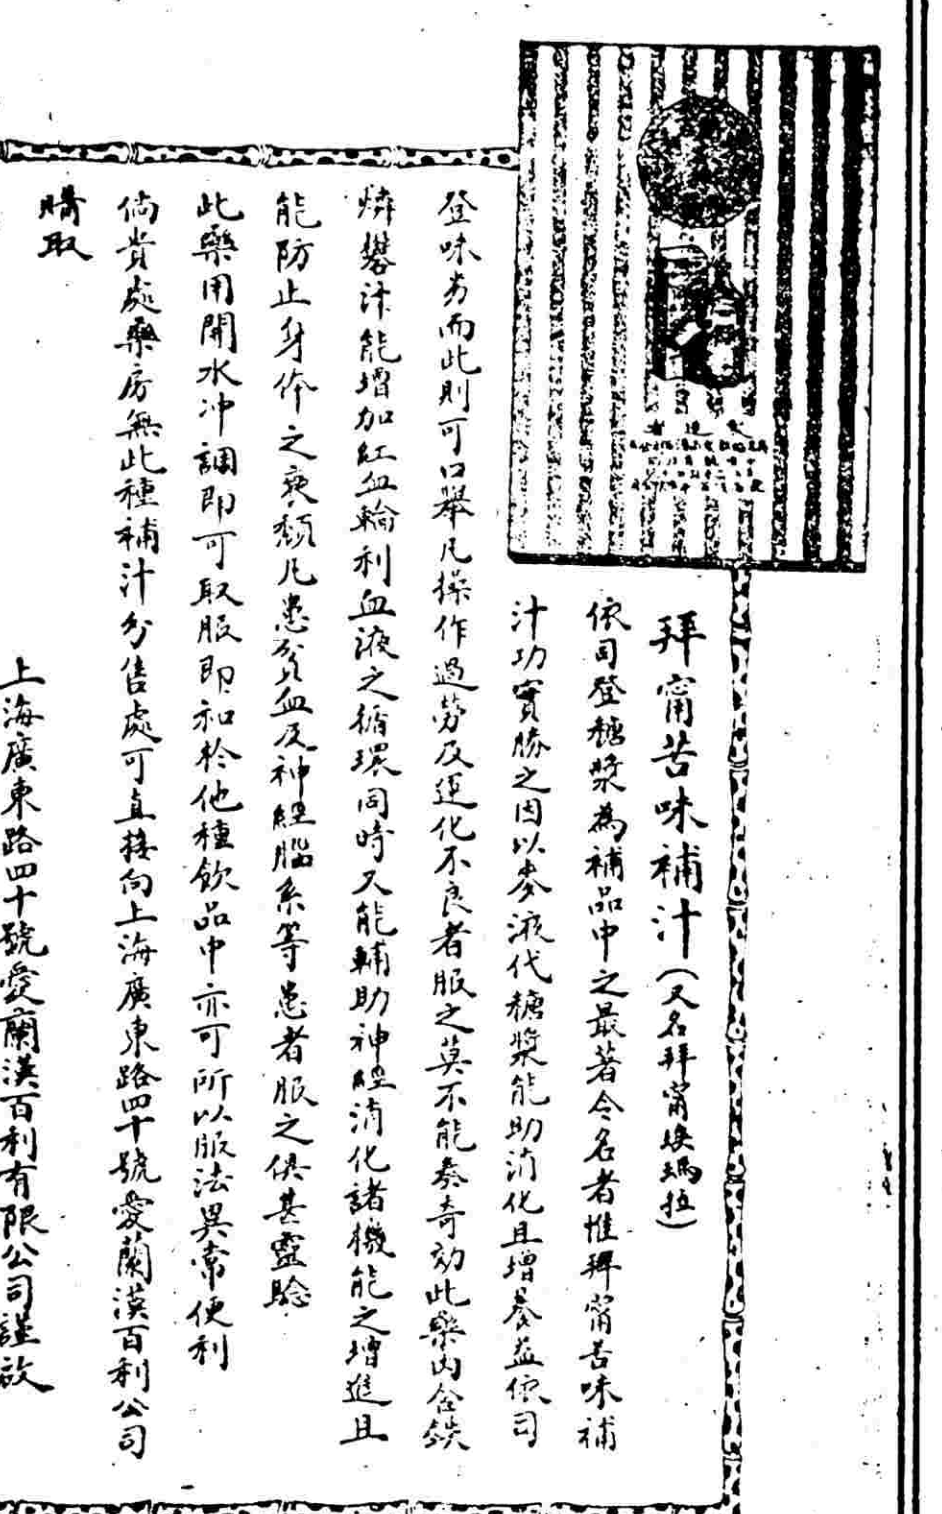 拜甯苦味補汁（又名拜甯埃瑪拉）
依司登糖漿為補品中之最著令名者惟拜甯苦味補
汁功實勝之因以麥液代糖漿能助消化且增養益依司
登味劣而此則可口舉凡操作過勞及運化不良者服之莫不能奏奇効此藥内含鉄
燐礬汁能增加紅血輪利血液之循環同時又能輔助神經消化諸機能之增進且
能防止身体之衰頹凡患貧血及神經腦系等患者服之俱甚靈驗
此藥用開水冲調即可取服即和於他種飲品中亦可所以服法異常便利
倘貴處藥房無此種補汁分售處可直接向上海廣東路四十號愛蘭漢百利公司
購取
上海廣東路四十號愛蘭漢百利有限公司謹啟